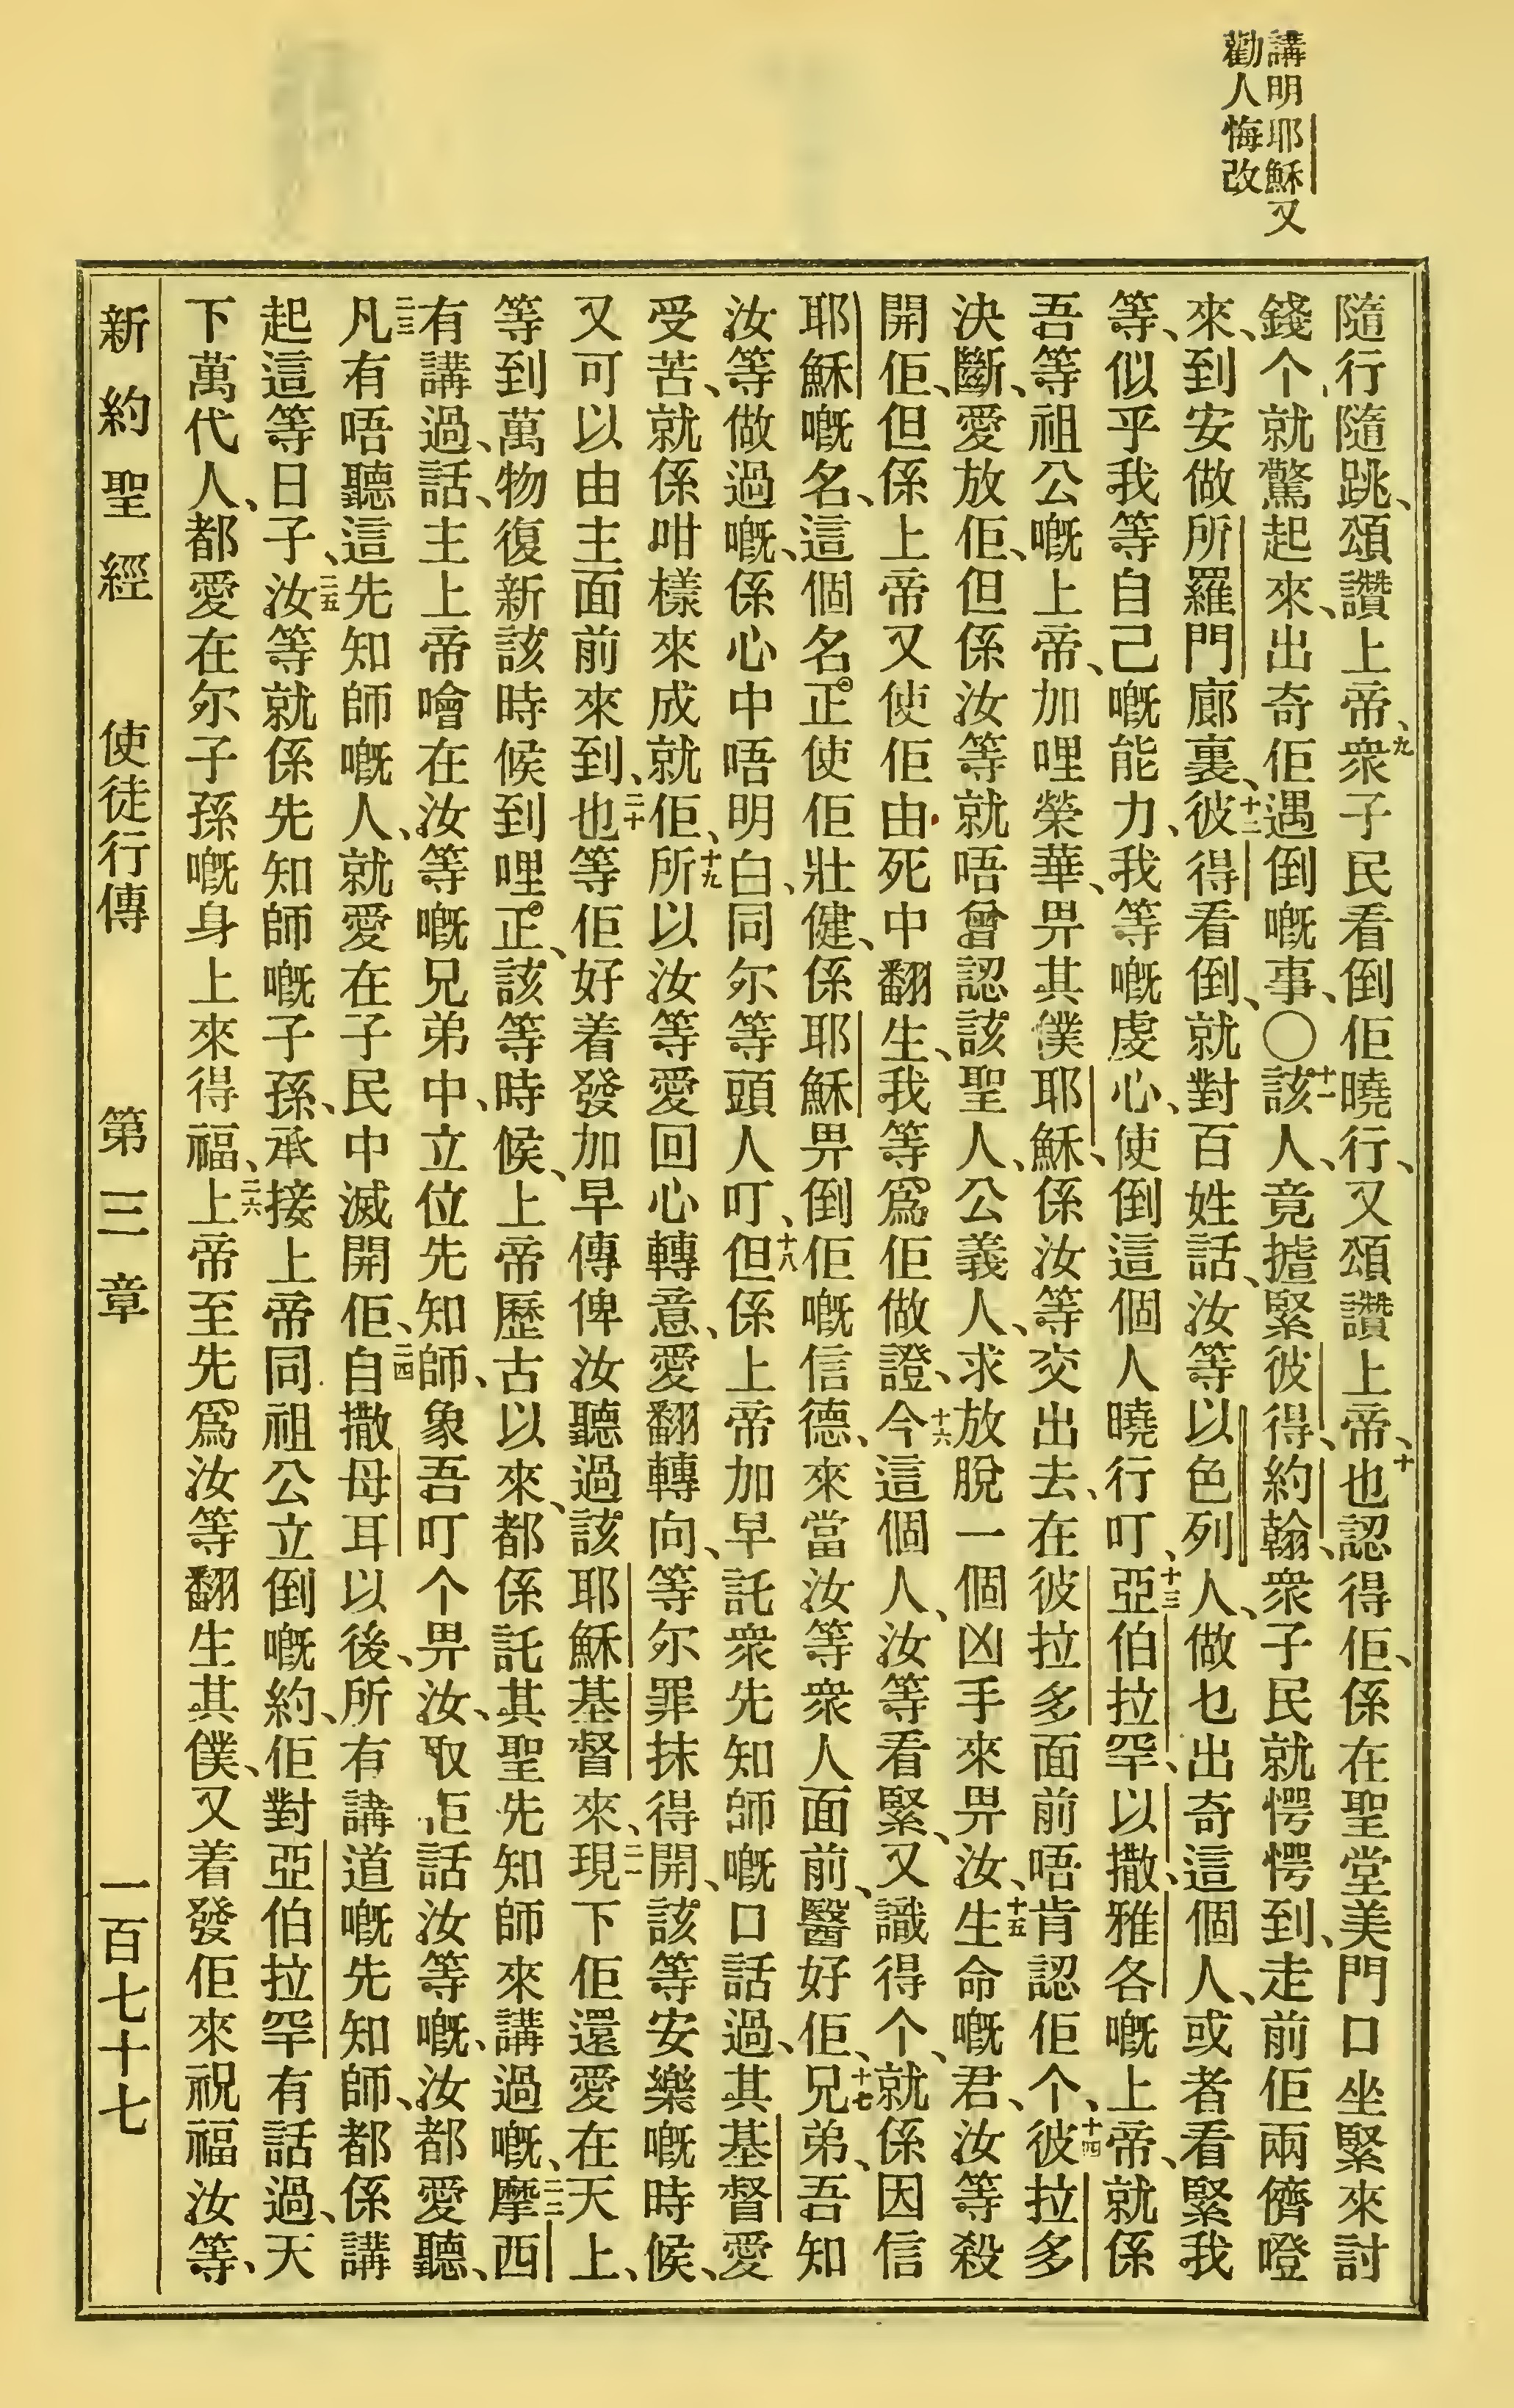 講明耶穌又
勸人悔改
隨行隨跳、頌讚上帝、九衆子民看倒佢曉行、又頌讚上帝、十也認得佢、係在聖堂美門口坐緊來討
錢个、就驚起來、出奇佢遇倒嘅事、〇十一該人、竟揸緊彼得、約翰、衆子民就愕愕到、走前佢兩儕嶝
來、到安做所羅門廊裏、十二彼得看倒、就對百姓話、汝等以色列人、做乜出奇這個人、或者看緊我
等、似乎我等自己嘅能力、我等嘅虔心、使倒這個人曉行叮、十三亞伯拉罕、以撒、雅各嘅上帝、就係
吾等祖公嘅上帝、加哩榮華、畀其僕耶穌、係汝等交出去、在彼拉多面前唔肯認佢个、十四彼拉多
決斷、愛放佢、但係汝等就唔曾認該聖人、公義人、求放脫一個凶手來畀汝、十五生命嘅君、汝等殺
開佢、但係上帝又使佢由死中翻生、我等爲佢做證、十六今這個人、汝等看緊、又識得个、就係因信
耶穌嘅名、這個名正使佢壯健、係耶穌畀倒佢嘅信德、來當汝等衆人面前、醫好佢、十七兄弟、吾知
汝等做過嘅、係心中唔明白、同尔等頭人叮、十八但係上帝加早託衆先知師嘅口話過、其基督愛
受苦、就係咁樣來成就佢、十九所以汝等愛回心轉意、愛翻轉向、等尔罪抹得開、該等安樂嘅時候、
又可以由主面前來到、二十也等佢好着發加早傳俾汝聽過該耶穌基督來、二一現下佢還愛在天上、
等到萬物復新該時候到哩正、該等時候、上帝歷古以來、都係託其聖先知師來講過嘅、二二摩西
有講過、話、主上帝噲在汝等嘅兄弟中、立位先知師、象吾叮个畀汝、取佢話汝等嘅、汝都愛聽、
二三凡有唔聽這先知師嘅人、就愛在子民中滅開佢、二四自撒母耳以後、所有講道嘅先知師、都係講
起這等日子、二五汝等就係先知師嘅子孫、承接上帝同祖公立倒嘅約、佢對亞伯拉罕有話過、天
下萬代人、都愛在尔子孫嘅身上來得福、二六上帝至先爲汝等翻生其僕、又着發佢來祝福汝等、
新約聖經　使徒行傳　第三章　一百七十七